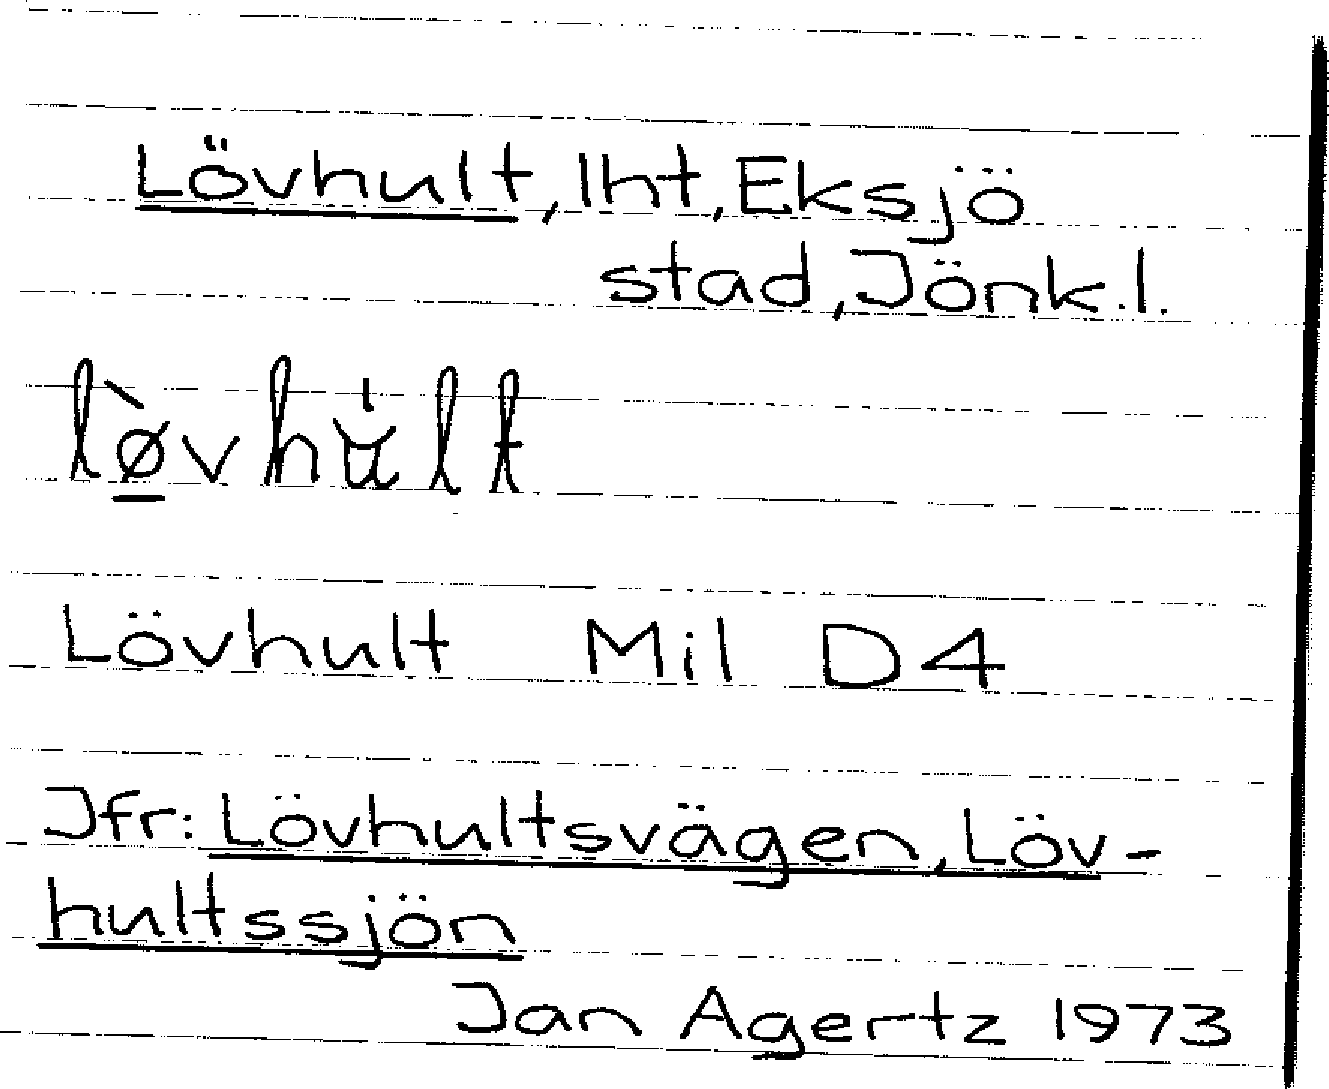 Lövhult, lht, Eksjö
stad, Jönk.l.
lø̲̀vhu̇lt
Lövhult Mil D4
Jfr: Lövhultsvägen, Löv-
hultssjön
Jan Agertz 1973